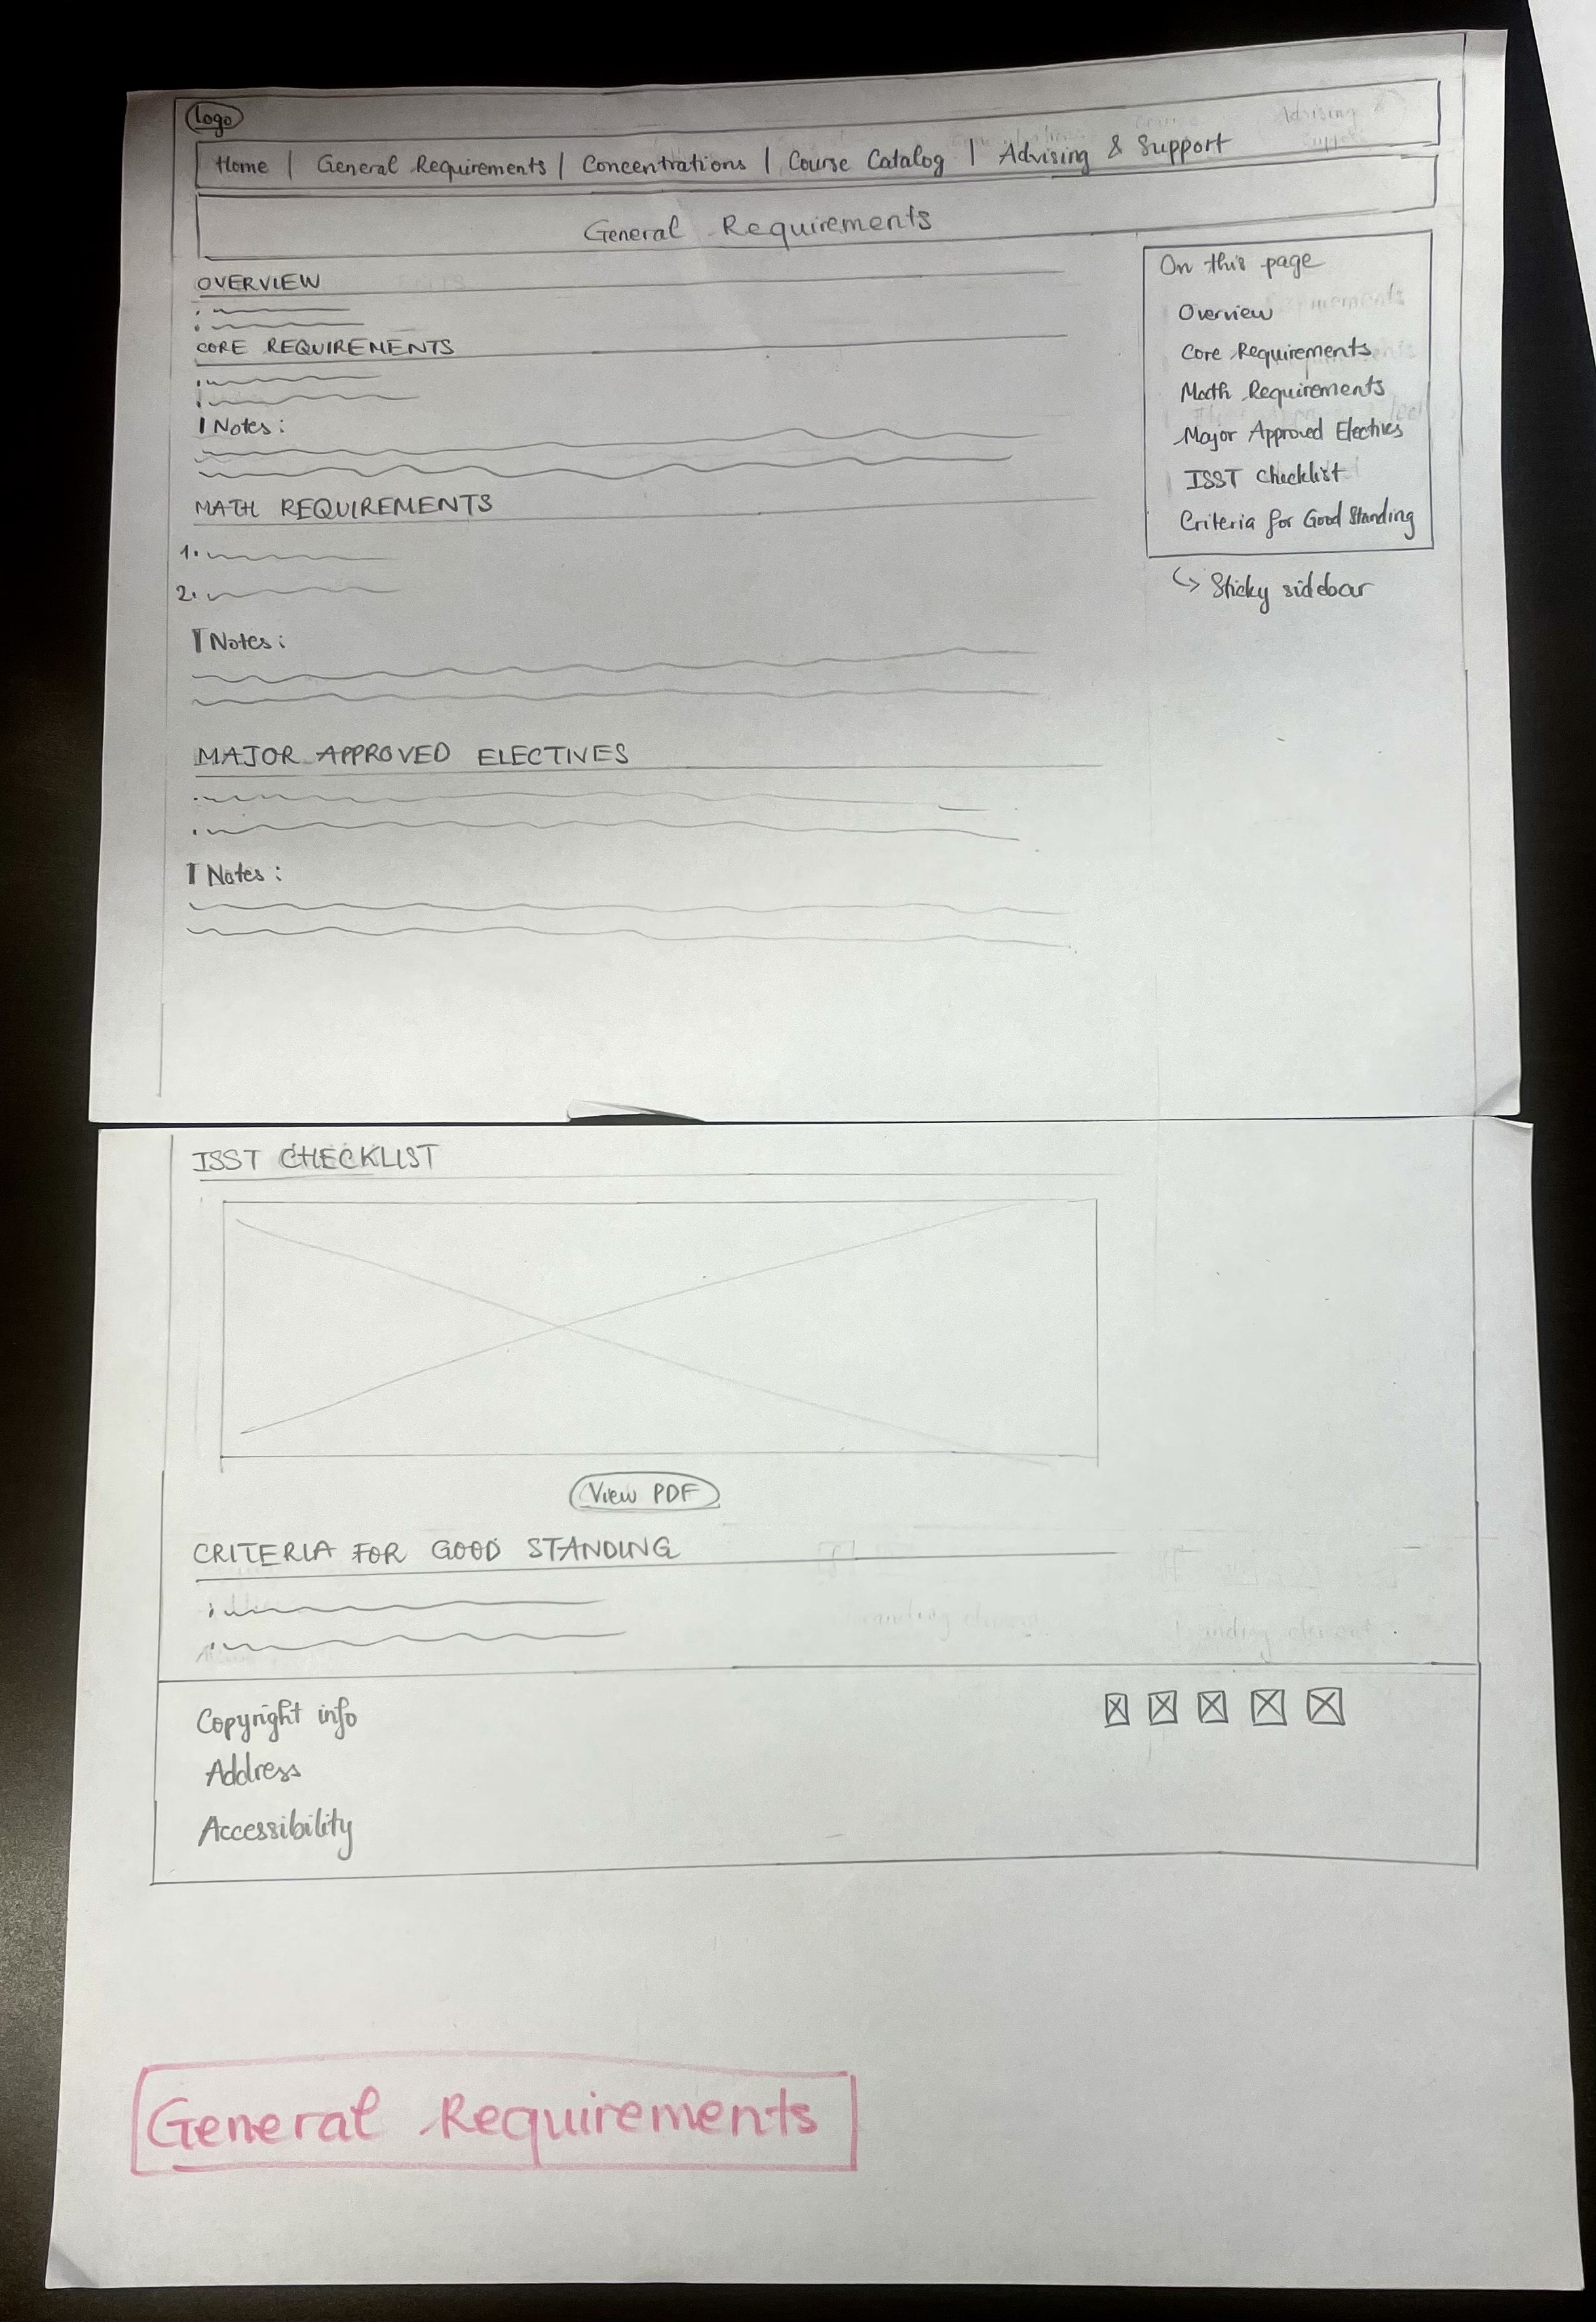 Logo
Home | General Requirements | Concentrations | Course Catalog | Advising & Support
General Requirements
OVERVIEW
CORE REQUIREMENTS
Notes:
MATH REQUIREMENTS
1.
2.
Notes:
MAJOR APPROVED ELECTIVES
Notes:
On this page
Overview
Core Requirements
Math Requirements
Major Approved Electives
ISST Checklist
Criteria for Good Standing
Sticky sidebar
ISST CHECKLIST
View PDF
CRITERIA FOR GOOD STANDING
Copyright info
Address
Accessibility
General Requirements